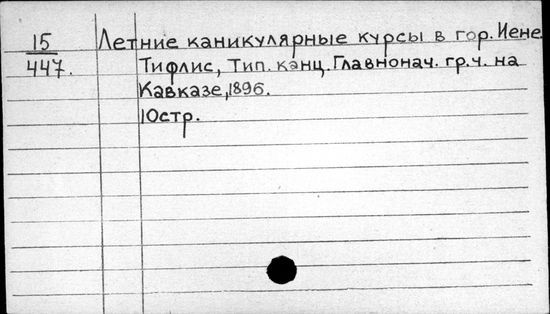 15 Летние каникулярные курсы в гор. Иене
447. Тифлис, Тип. канц. Главнонач. гр. ч. на
Кавказе, 1896.
10 стр.